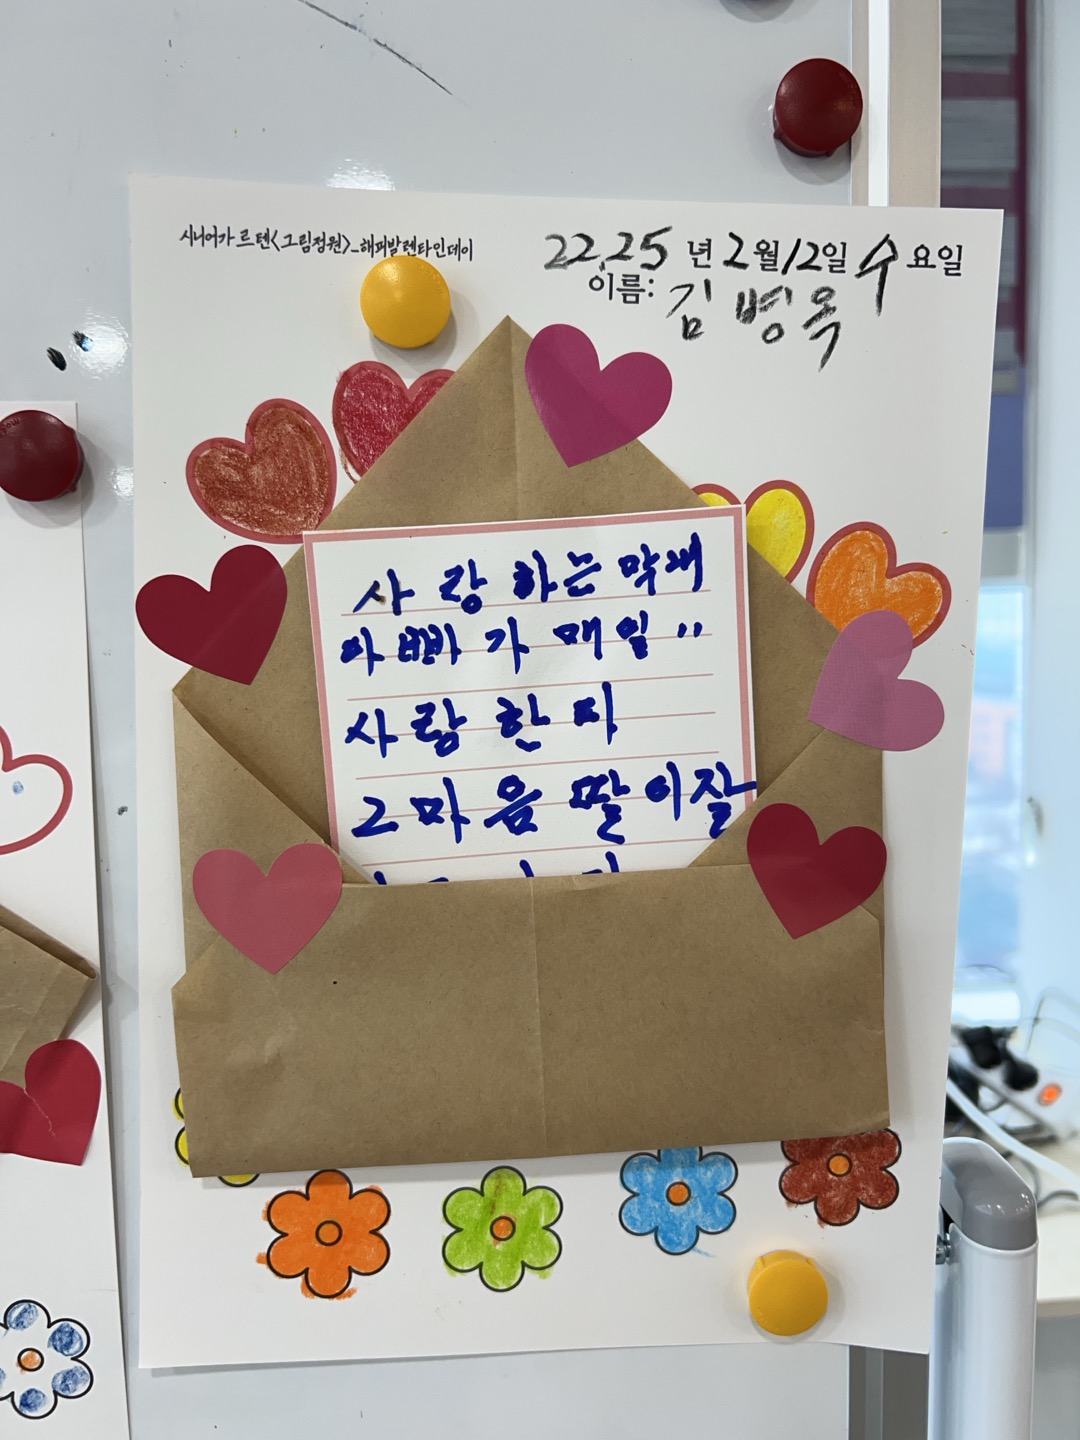 시니어가르텐<그림정원>_해피발렌타인데이
22.25년 2월 12일 수요일
이름: 김병옥
사랑하는 막내
아빠가 매일..
사랑한다
그마음 딸이잘